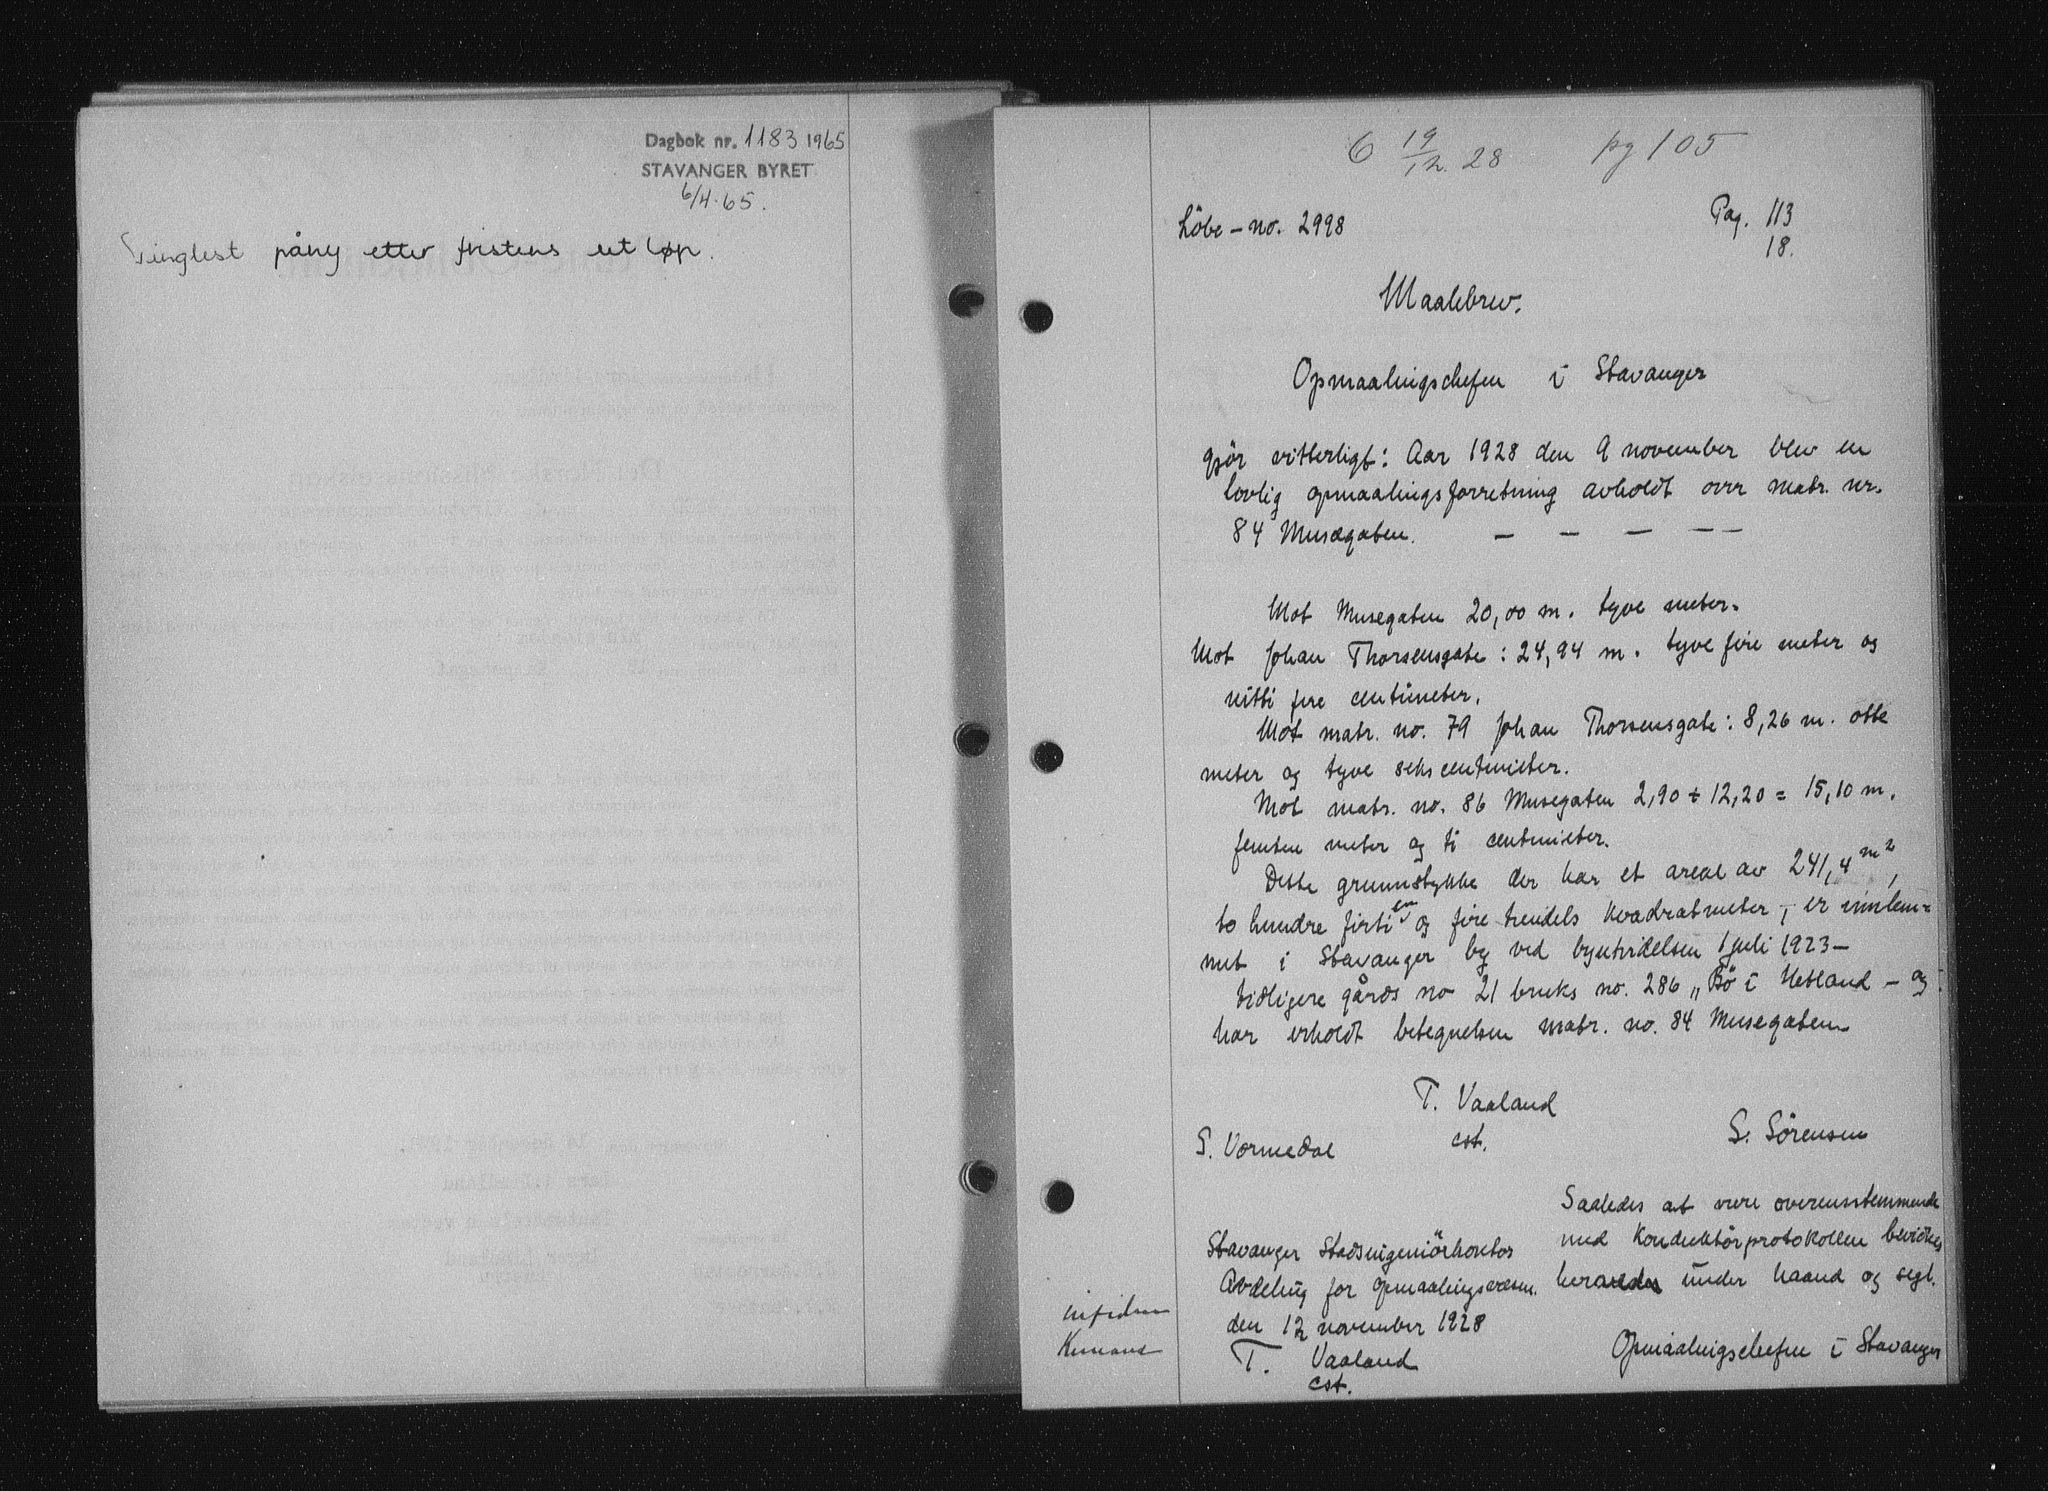 Dagbok nr. 1183 1965
STAVANGER BYRET
6/4.65.
Tinglest påny etter fristens utløp.
6 19/12. 28 pg 105
Löbe-no. 2998
Pag. 113
18.
Maalebrev.
Opmaalingschefen i Stavanger
gjör vitterligt: Aar 1928 den 9 november blev en
lovlig opmaalingsforretning avholdt over matr. nr.
84 Musægaten. — — — — —
Mot Musegaten 20,00 m. tyve meter.
Mot Johan Thorsensgate: 24,94 m. tyve fire meter og
nitti fire centimeter.
Mot matr. no. 79 Johan Thorsensgate: 8,26 m. otte
meter og tyve seks centimeter.
Mot matr. no. 86 Musegaten 2,90 + 12,20 = 15,10 m.
femten meter og ti centimeter.
Dette grunnstykke der har et areal av 241,4 m²,
to hundre firti en og fire tiendels kvadratmeter, - er innlem=
met i Stavanger by ved byutvidelsen 1 juli 1923 —
tidligere gårds no 21 bruks no. 286 „Bö i Hetland - og
har erholdt betegnelsen matr. no. 84 Musegaten
T. Vaaland
cst.
S. Vormedal
S. Sörensen
Stavanger Stadsingeniörkontor
Avdeling for opmaalingsvæsen.
den 12 november 1928
T. Vaaland
cst.
Saaledes at være overensstemmende
med Konduktörprotokollen bevidnes
herved under haand og segl.
Opmaalingschefen i Stavanger